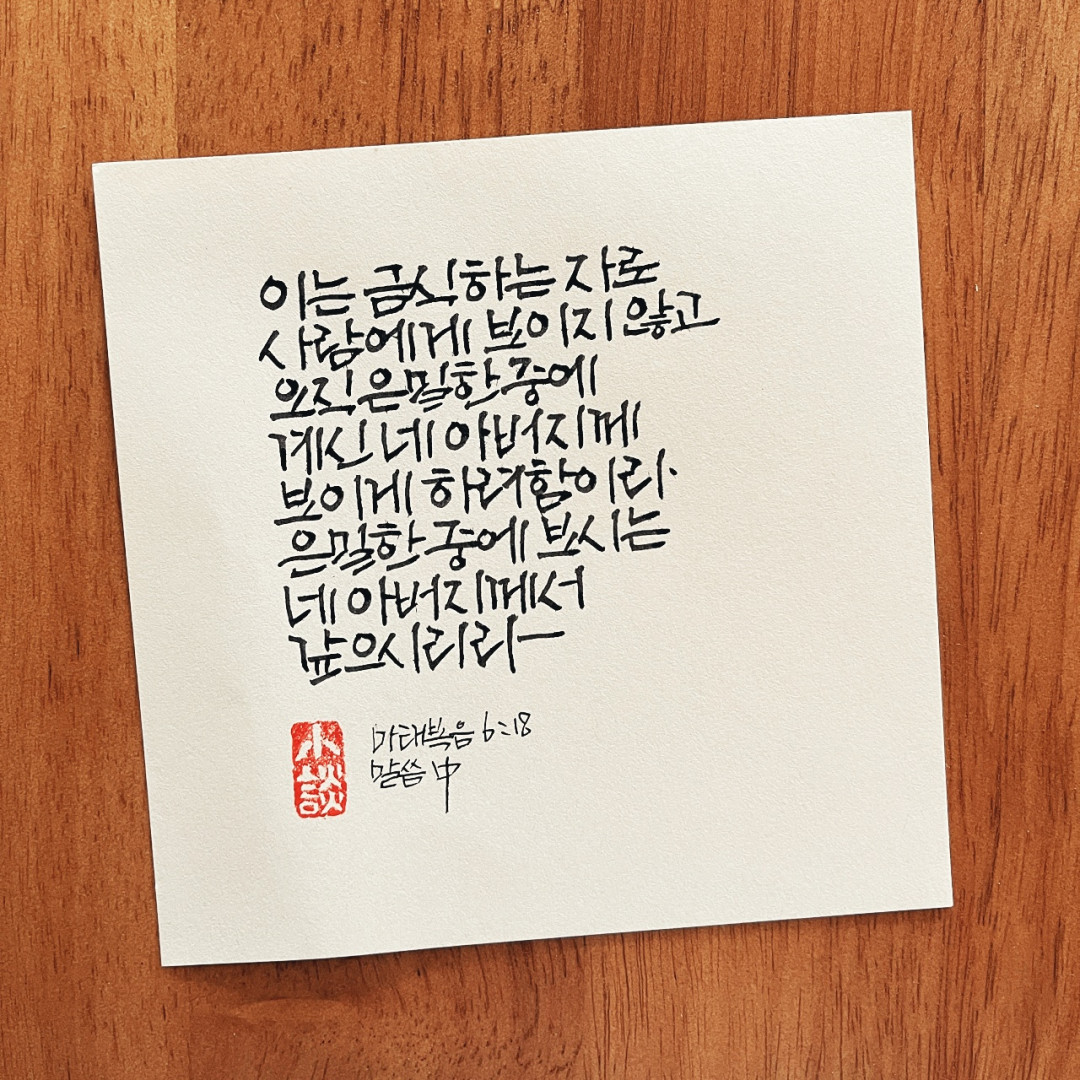 이는 금식하는 자로
사람에게 보이지 않고
오직 은밀한 중에
계신 네 아버지께
보이게 하려함이라.
은밀한 중에 보시는
네 아버지께서
갚으시리라ㅡ
마태복음 6:18
말씀 中
小談